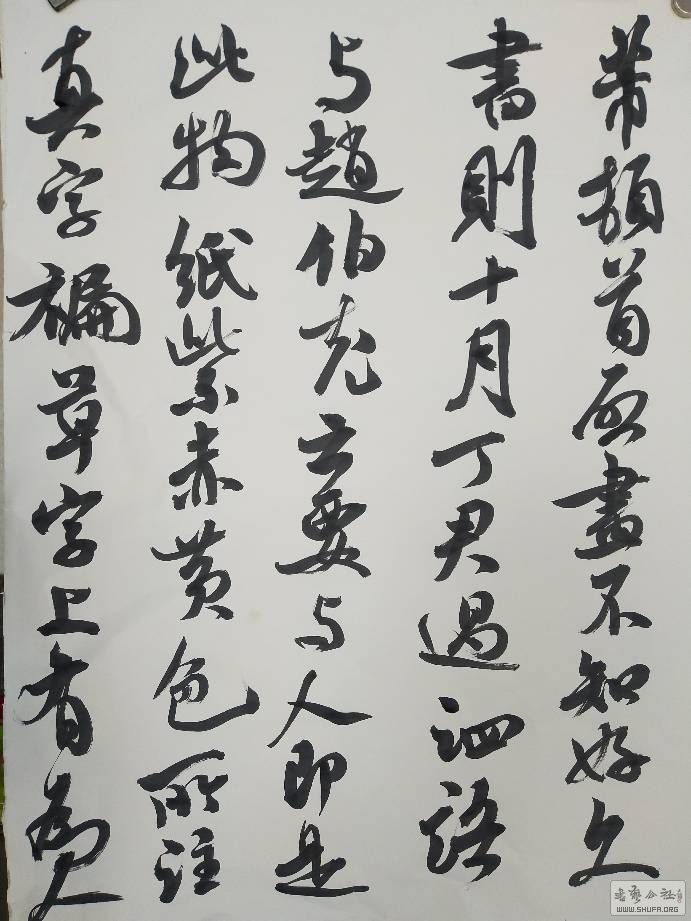 芾頓首启畫不知好久
書則十月丁君過泗語
与趙伯充云要与人即是
此物紙紫赤黄色所注
真字褊草字上有為人
书艺公社
WWW.SHUFA.ORG